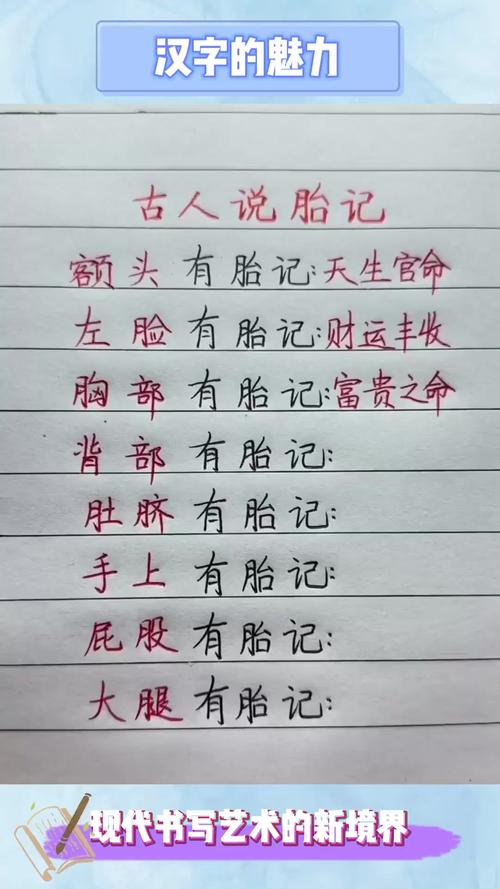 汉字的魅力
古人说胎记
额头有胎记:天生官命
左脸有胎记:财运丰收
胸部有胎记:富贵之命
背部有胎记:
肚脐有胎记:
手上有胎记:
屁股有胎记:
大腿有胎记:
现代书写艺术的新境界